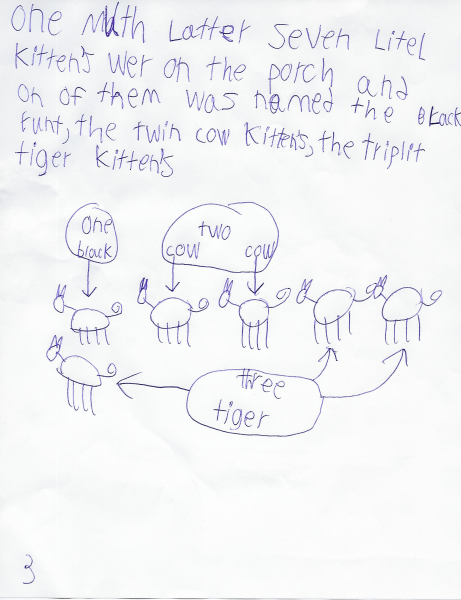 one Muth Latter Seven Litel
Kitten's wer on the porch and
on of them was named the black
runt, the twin cow Kitten's, the triplit
tiger Kitten's
one
black
two
cow cow
three
tiger
3